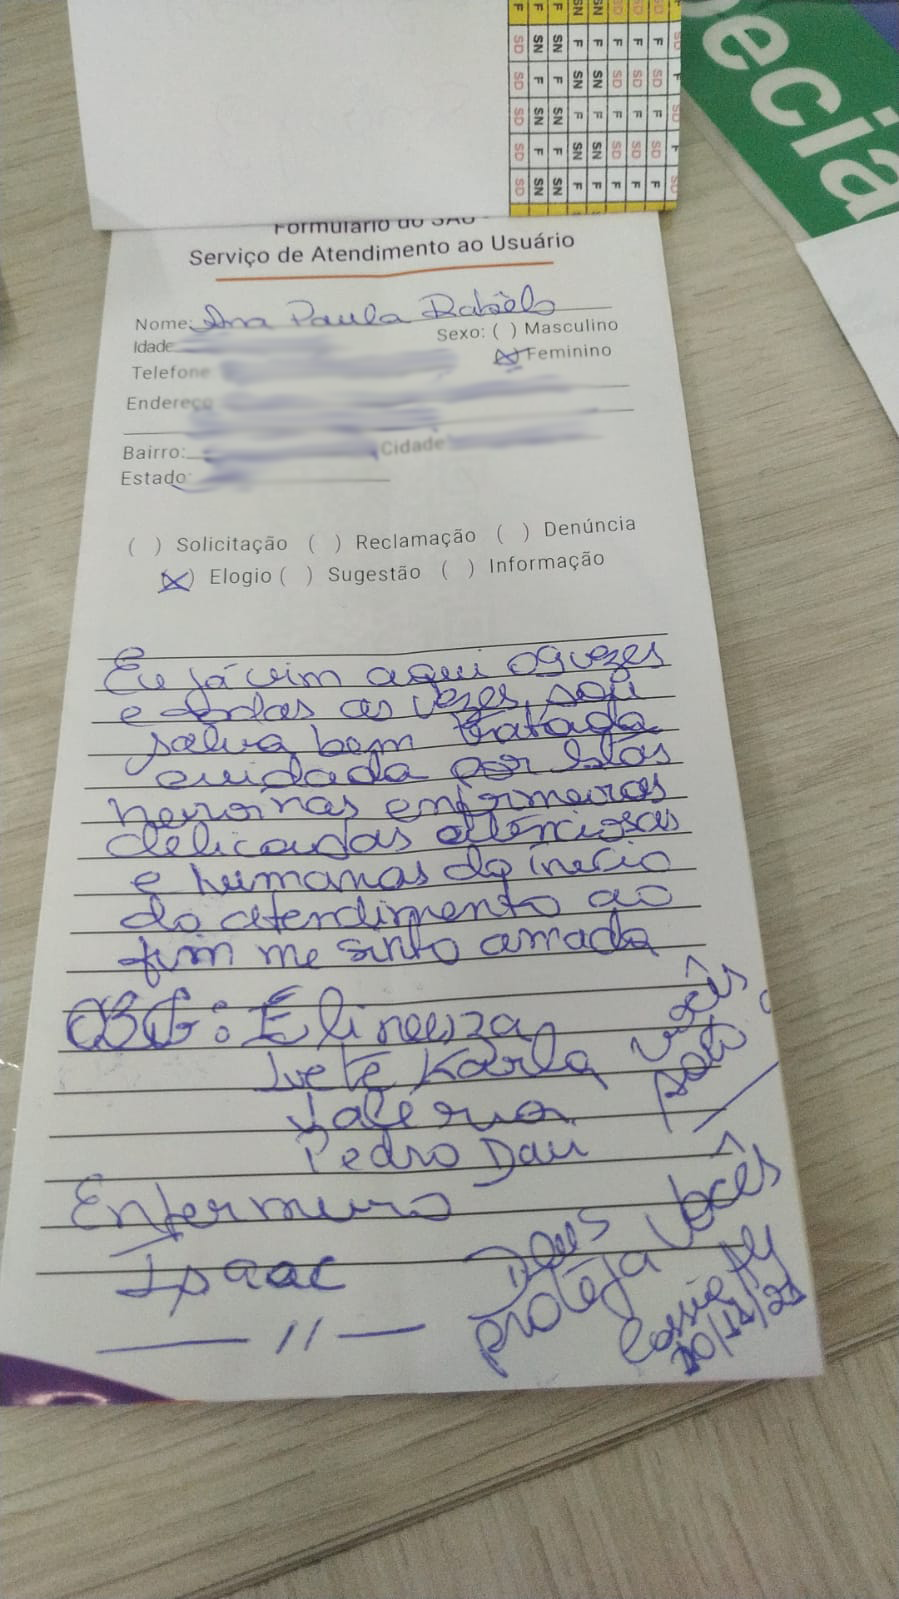 ecia
Formulário do SAU -
Serviço de Atendimento ao Usuário
Nome: Ana Paula Rabelo
Sexo: ( ) Masculino
Idade
(X) Feminino
Telefone
Endereço
Bairro: Cidade
Estado
( ) Solicitação ( ) Reclamação ( ) Denúncia
(X) Elogio ( ) Sugestão ( ) Informação
Eu já vim aqui 09 vezes
e todas as vezes, sou
salva bem tratada
cuidada por Estas
heroínas enfermeiras
delicadas atenciosas
e humanas do início
do atendimento ao
fim me sinto amada
OBG: Elineuza
Ivete Karla
Valéria
Pedro Davi
Enfermeiro
Isaac
vocês
são
Deus
proteja vocês